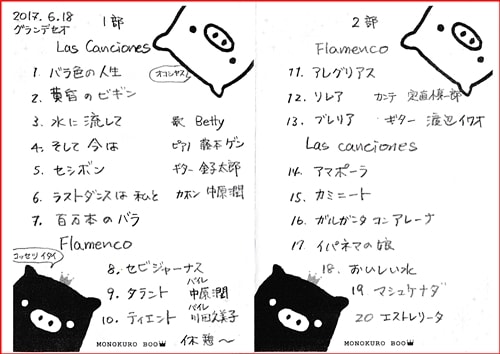 2017. 6.18
グランデセオ
1部
Las Canciones
オコシヤス!
1. バラ色の人生
2. 黄昏のビギン
3. 水に流して 歌 Betty
4. そして今は ピアノ 藤本ゲン
5. セシボン ギター 金子太郎
6. ラストダンスは私と カホン 中原潤
7. 百万本のバラ
Flamenco
コッセツイタイ
8. セビジャーナス
9. タラント バイレ 中原潤
10. ティエント バイレ 川田久美子
休憩〜
MONOKURO BOO
2部
Flamenco
11. アレグリアス
12. ソレア カンテ
13. ブレリア ギター 渡辺イワオ
Las canciones
14. アマポーラ
15. カミニート
16. ガルガンタ コン アレーナ
17. イパネマの娘
18. おいしい水
19 マシュケナダ
20 エストレリータ
MONOKURO BOO